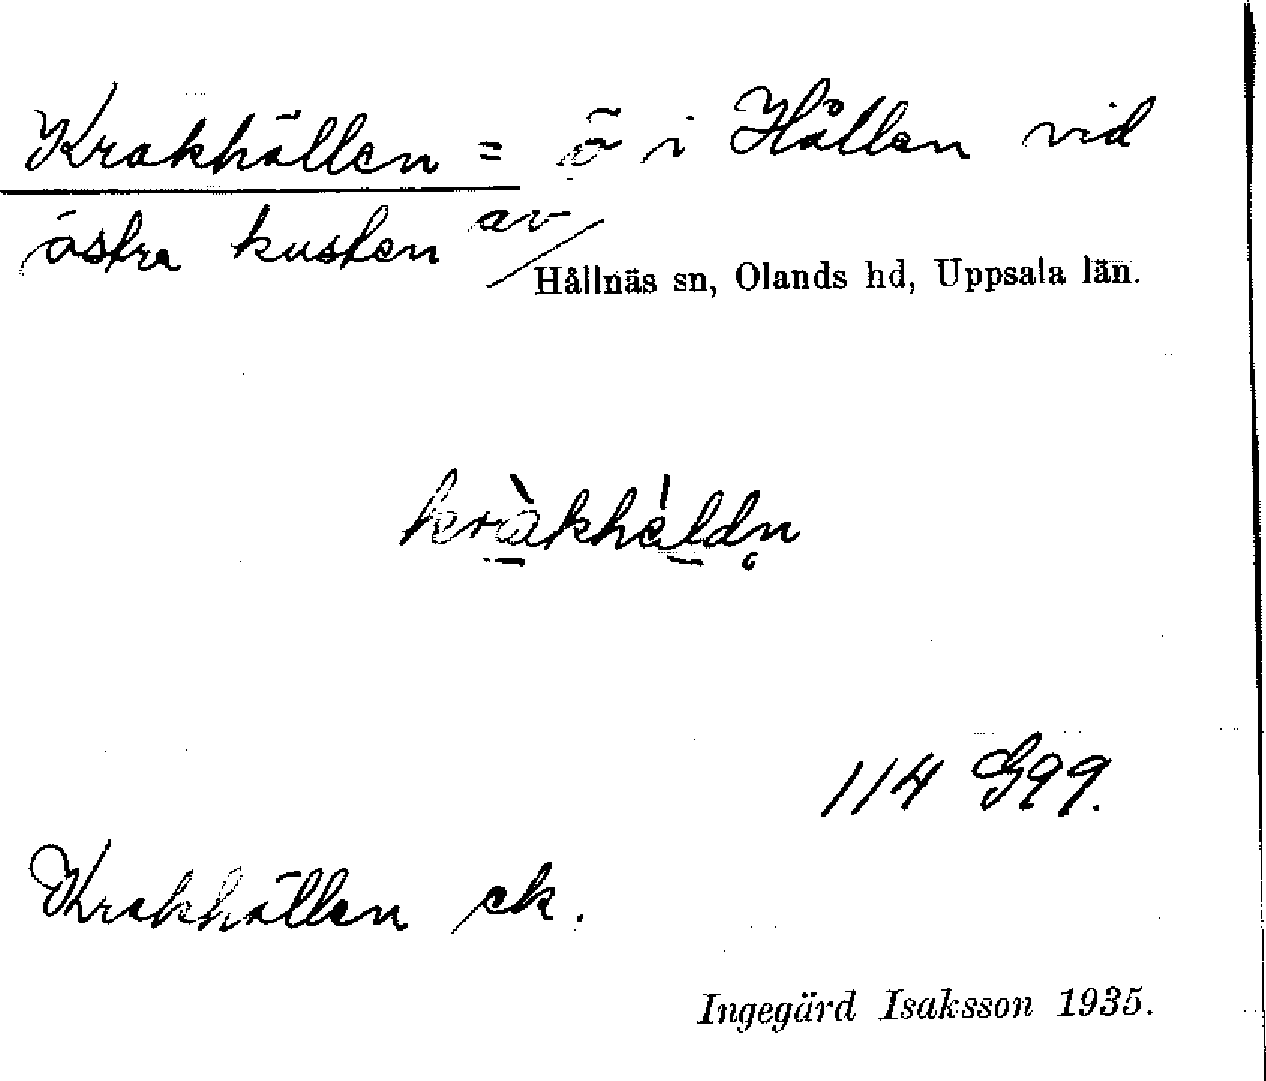 Krakhällen = ö i Hållen vid
östra kusten av
Hållnäs sn, Olands hd, Uppsala län.
kràkhàldn̥
114 G99.
Krakhällen ek.
Ingegärd Isaksson 1935.